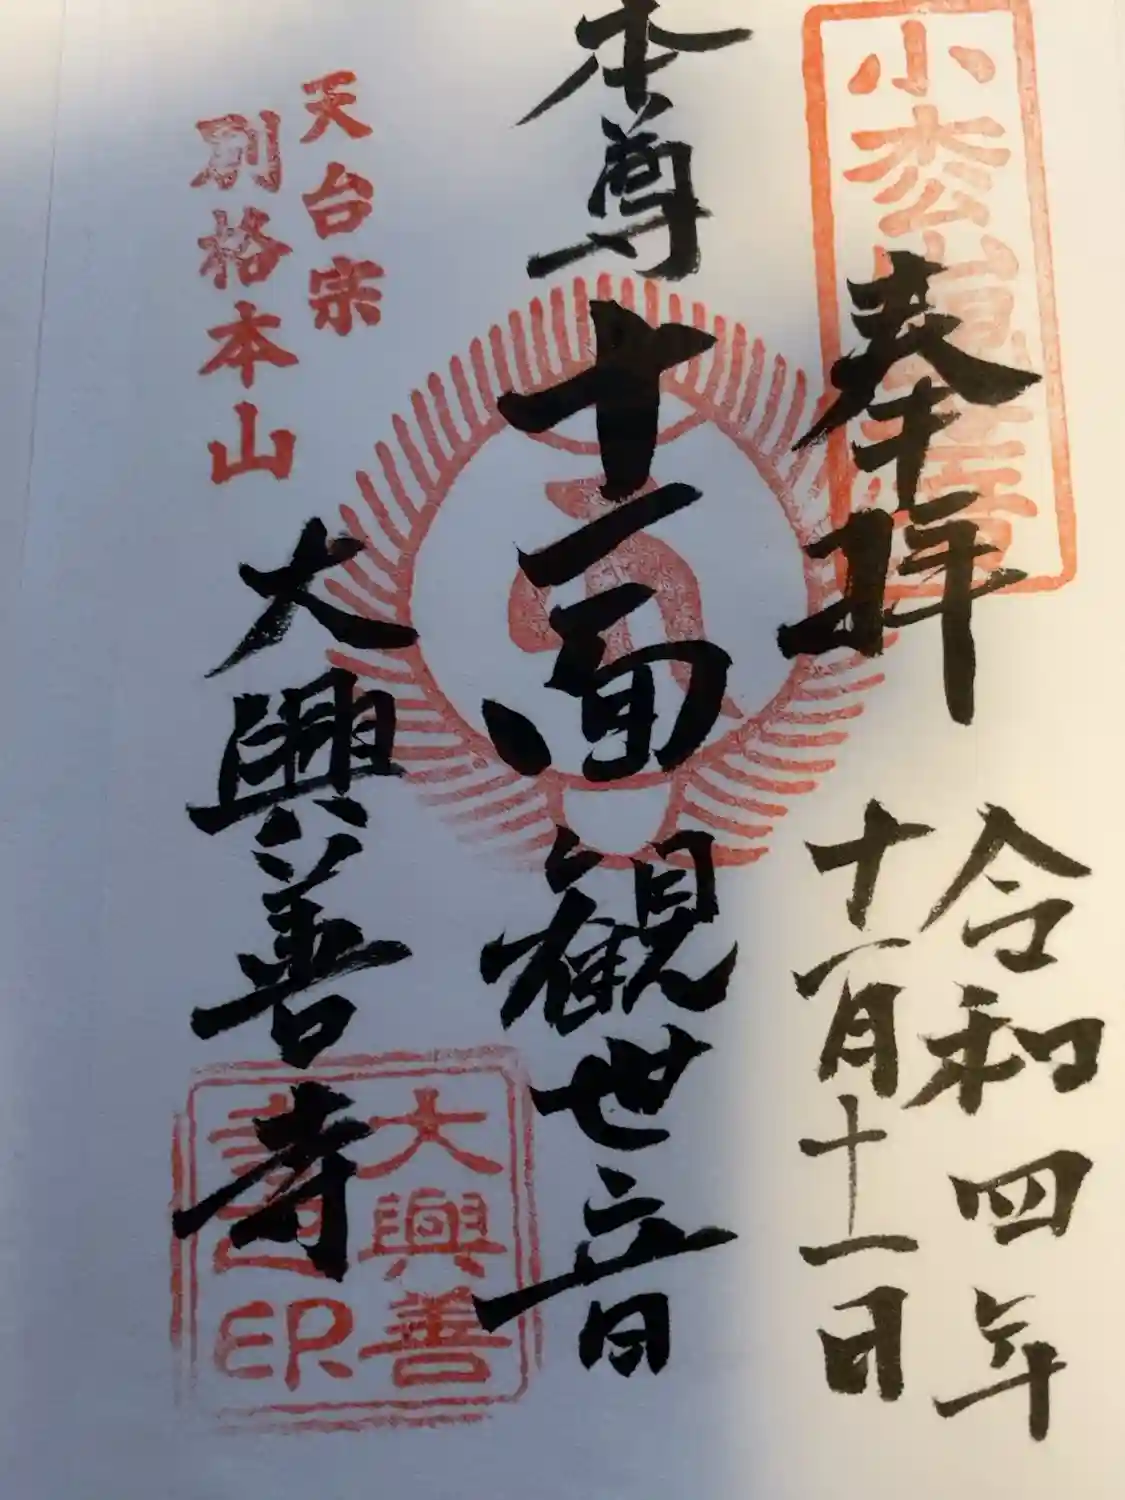 小枩
奉拝
令和四年
十一月十一日
本尊
十一面観世音
天台宗
別格本山
大興善寺
大興善
印